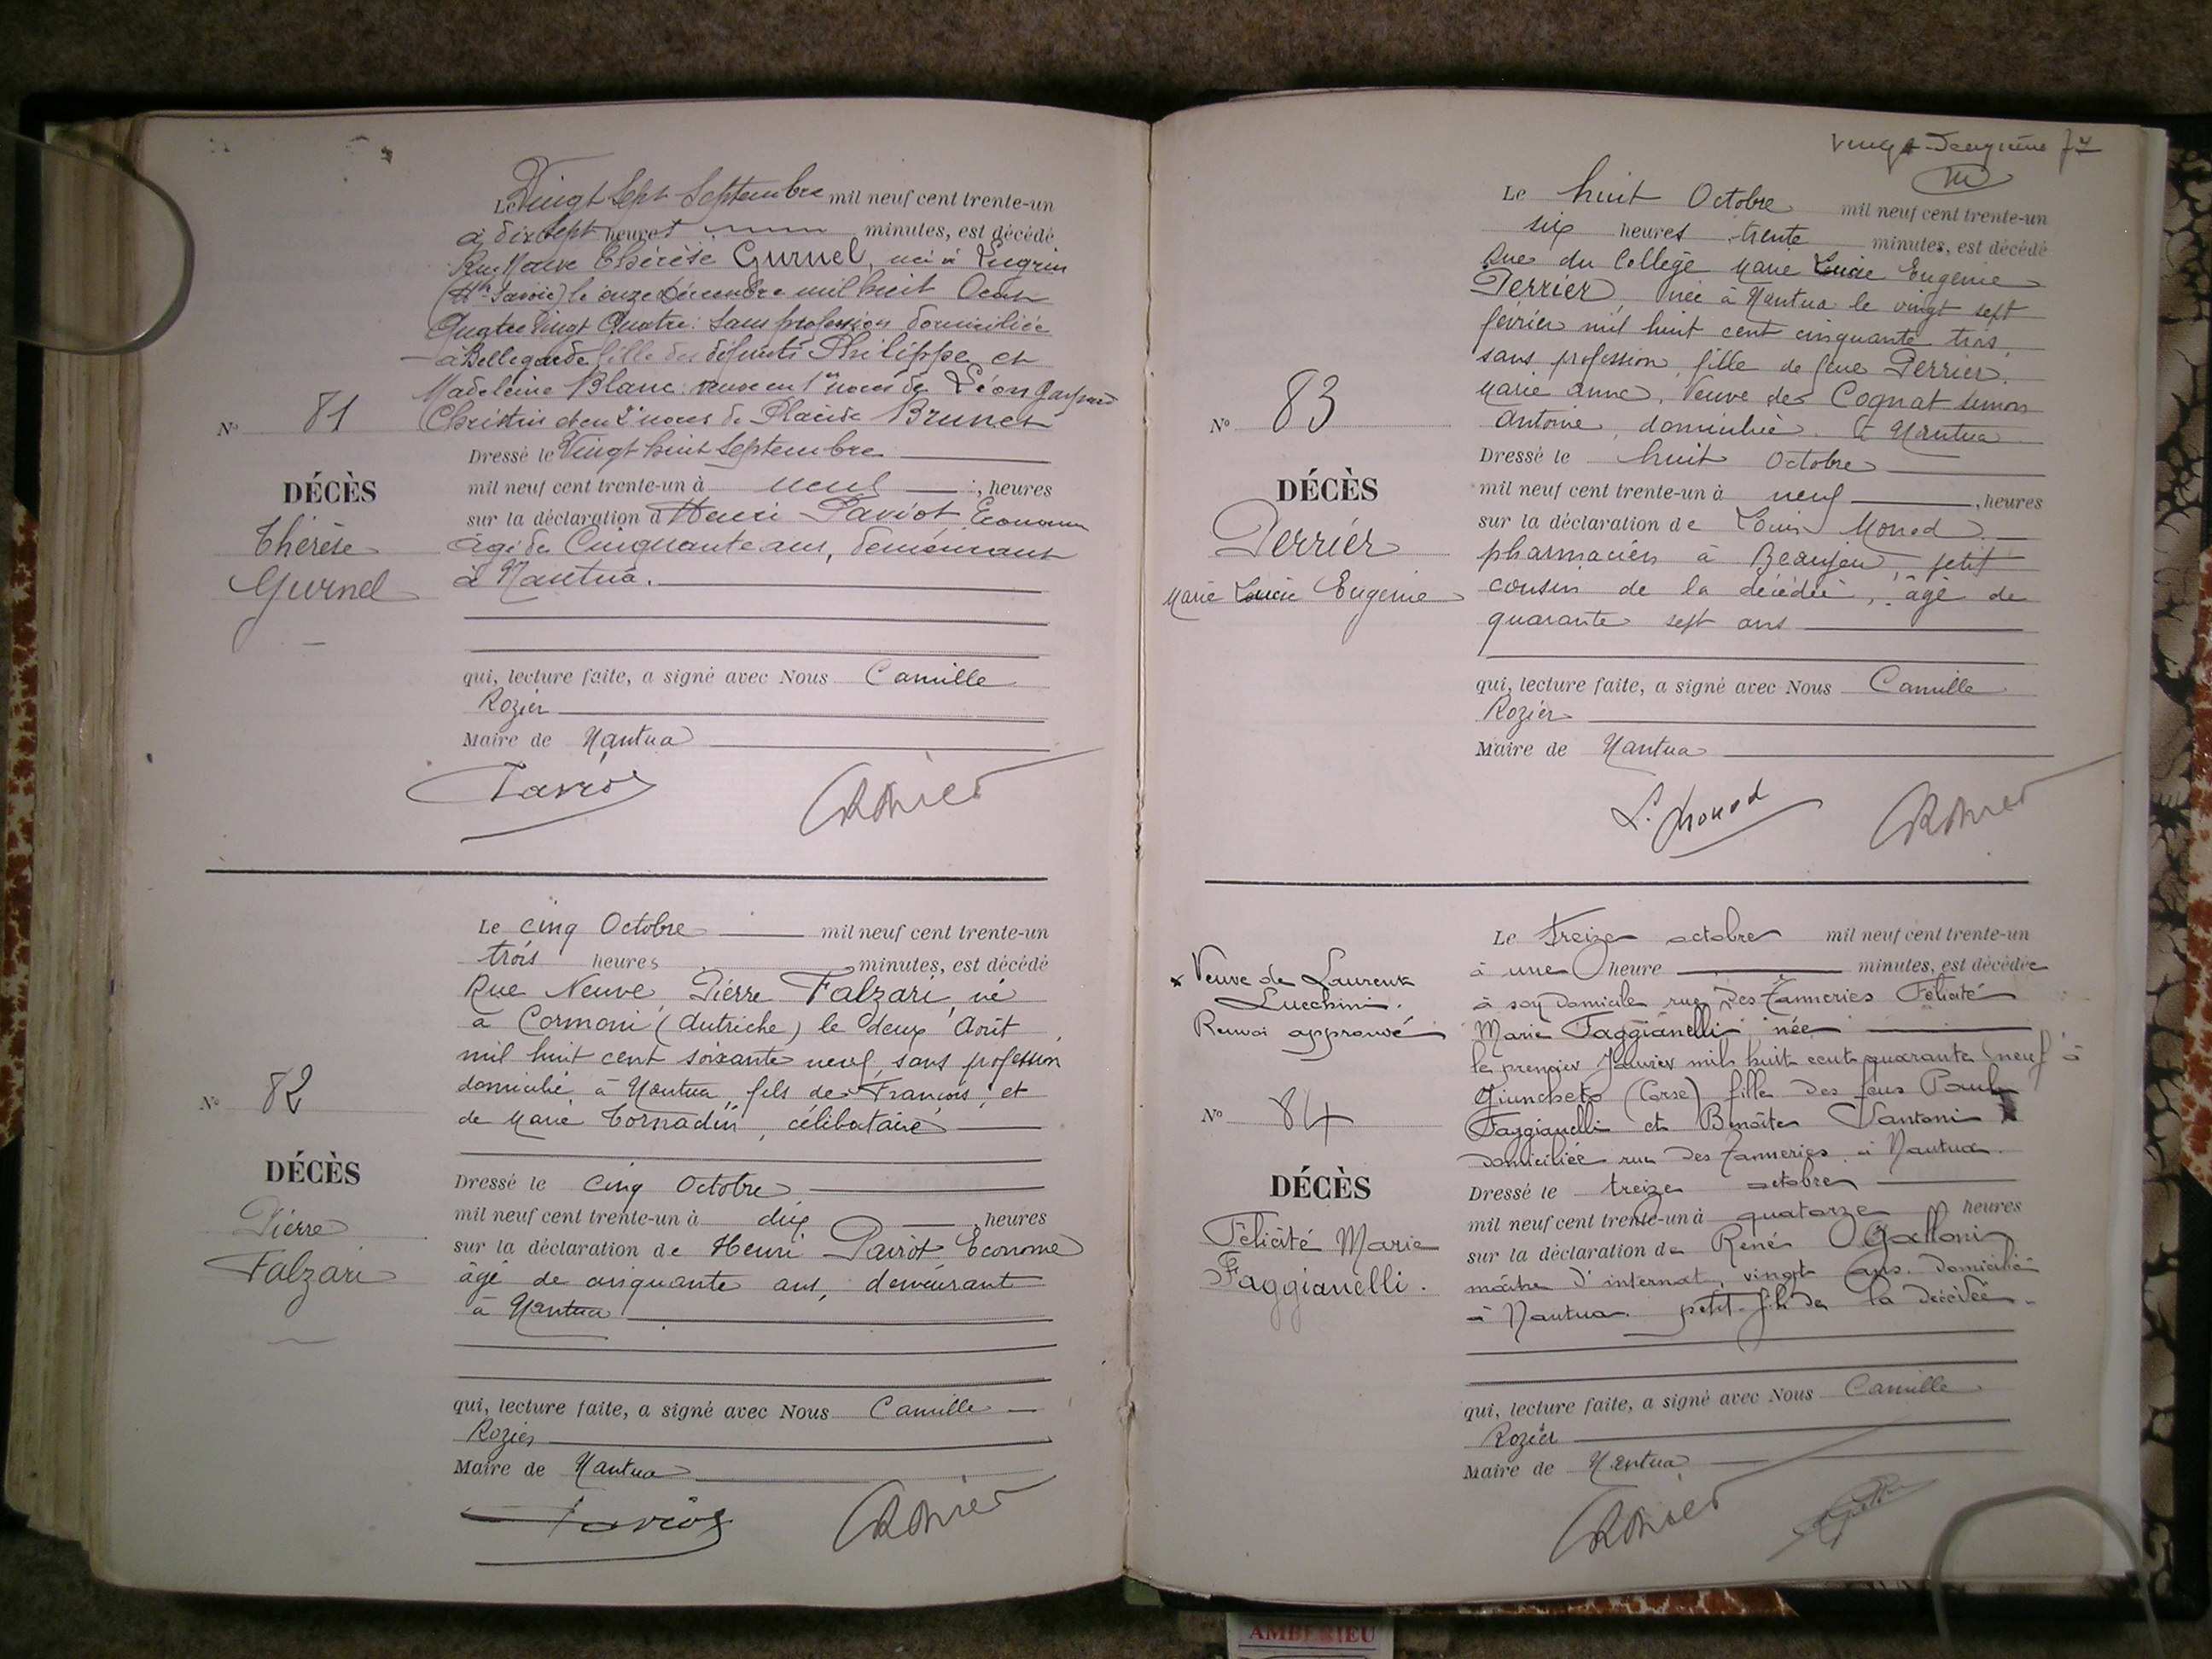 Le Vingt Sept Septembre mil neuf cent trente-un
à dix sept heures minutes, est décédé
Rue Neuve Thérèse Gurnel, née à Lugrin
(Hte Savoie) le onze Décembre mil huit Cent
Quatre Vingt Quatre: sans profession domiciliée
à Bellegarde fille des défunts Philippe et
Madeleine Blanc: veuve en 1ères noces de Léon Gaspard
Christin et en 2es noces de Placide Brunet
No 81
DÉCÈS
Thérèse
Gurnel
Dressé le Vingt huit Septembre
mil neuf cent trente-un à neuf, heures
sur la déclaration d Henri Paviot Econome
âgé de Cinquante ans, demeurant
à Nantua.
qui, lecture faite, a signé avec Nous Camille
Rozier
Maire de Nantua
Le cinq Octobre mil neuf cent trente-un
trois heures minutes, est décédé
Rue Neuve Pierre Falzari, né
à Cormoni (Autriche) le deux Août
mil huit cent soixante neuf, sans profession
domicilié à Nantua, fils de François, et
de Marie Tornadin, célibataire
No 82
DÉCÈS
Pierre
Falzari
Dressé le cinq Octobre
mil neuf cent trente-un à dix, heures
sur la déclaration de Henri Paviot Econome
âgé de cinquante ans, demeurant
à Nantua
qui, lecture faite, a signé avec Nous Camille
Rozier
Maire de Nantua
Le huit Octobre mil neuf cent trente-un
six heures trente minutes, est décédé
Rue du Collège Marie Lucie Eugenie
Perrier, née à Nantua le vingt sept
février mil huit cent cinquante trois,
sans profession, fille de feue Perrier,
Marie Anne, Veuve de Cognat Simon
Antoine, domiciliée à Nantua
No 83
DÉCÈS
Perrier
Marie Lucie Eugenie
Dressé le huit Octobre
mil neuf cent trente-un à neuf, heures
sur la déclaration de Louis Monod
pharmacien à Beaujeu, petit
cousin de la décédée, âgé de
quarante sept ans
qui, lecture faite, a signé avec Nous Camille
Rozier
Maire de Nantua
L. Monod
Le treize octobre mil neuf cent trente-un
à une heure minutes, est décédée
à son domicile rue des Tanneries Félicité
Marie Faggianelli née
le premier Janvier mil huit cent quarante neuf à
Giuncheto (Corse) fille des feus Paul
Faggianelli et Benoîte Santoni x
domiciliée rue des Tanneries à Nantua.
x Veuve de Laurent
Lucchini.
Renvoi approuvé
No 84
DÉCÈS
Félicité Marie
Faggianelli.
Dressé le treize octobre
mil neuf cent trente-un à quatorze heures
sur la déclaration de René Galloni
maître d'internat, vingt ans, domicilié
à Nantua petit-fils de la décédée.
qui, lecture faite, a signé avec Nous Camille
Rozier
Maire de Nantua
AMBERIEU